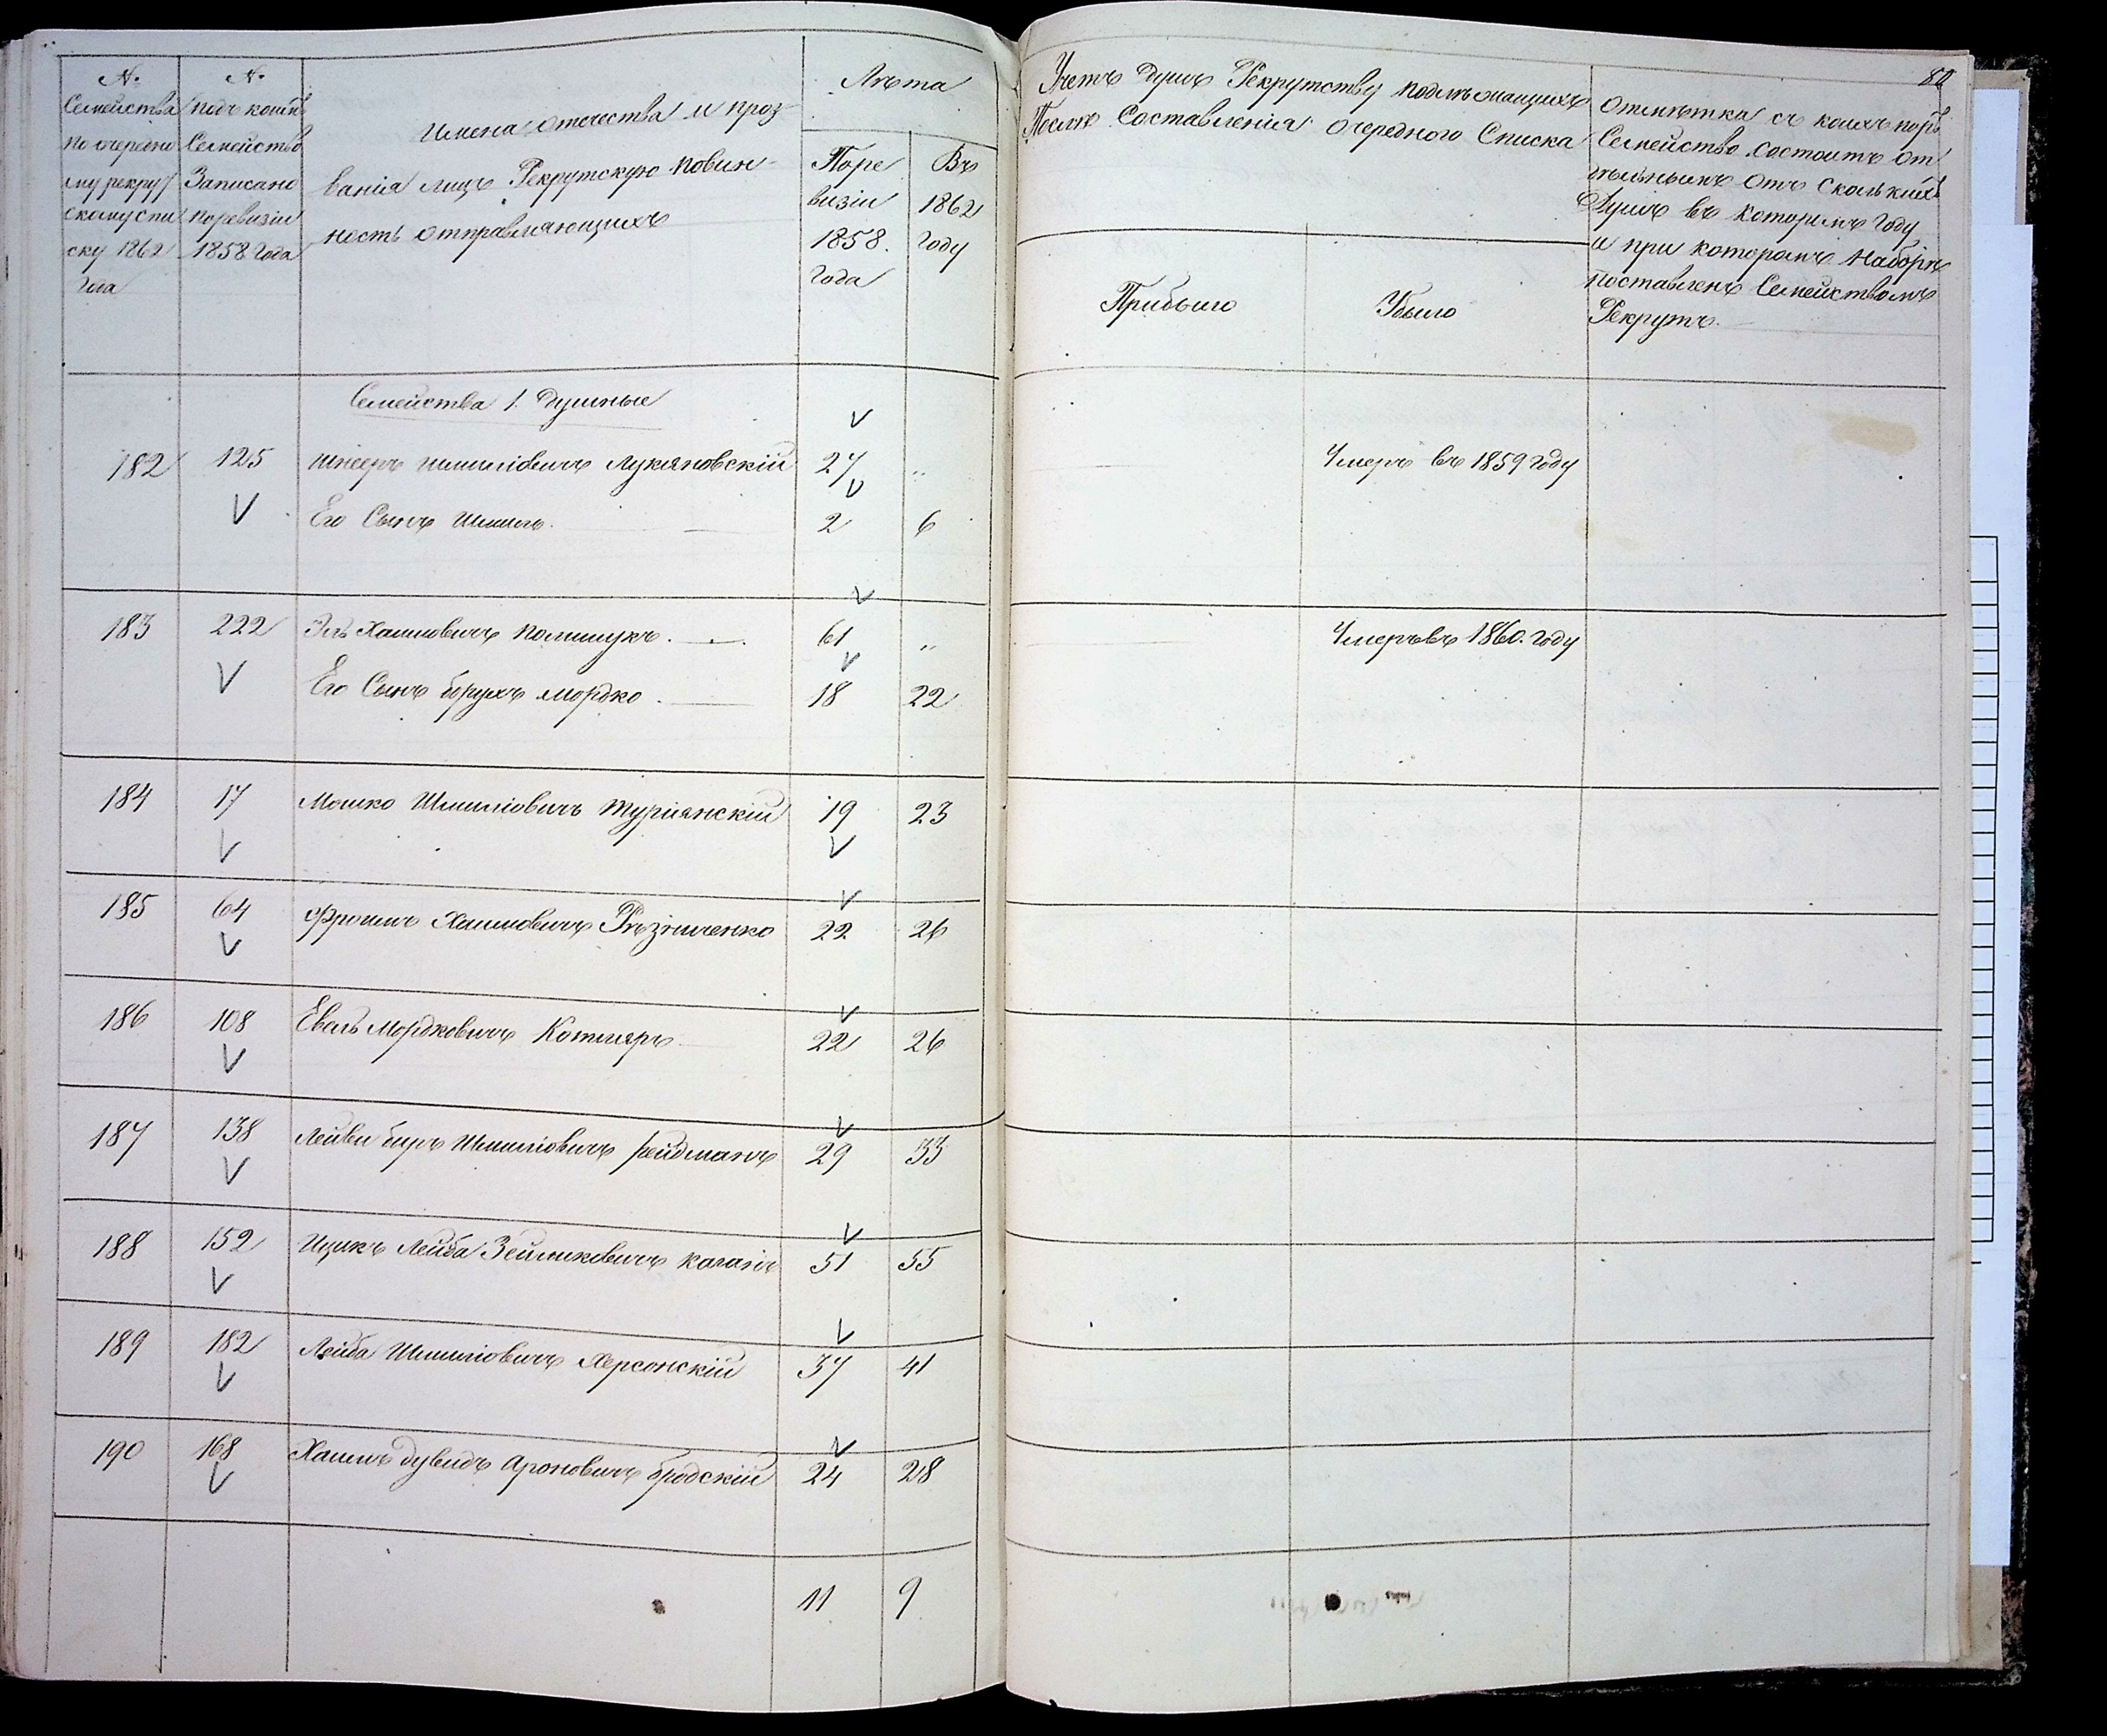 №
Семейства
по очередно
му рекрут
скому спи
ску 1862
Года
№
подъ коимъ
Семейство
Записано
поревизіи
1858 Года
Имена, отечества и проз-
ванія лицъ Рекрутскую повин-
ность отправляющихъ
Лѣта
Поре
визіи
1858.
Года
Въ
1862
Году
Учетъ душъ Рекрутству подлѣжащихъ
Послѣ Составленія очередного Списка
Прибыло
Убыло
82
Отмѣтка съ коихъ поръ
Семейство состоитъ от
дѣльнымъ отъ сколькихъ
Душъ въ которомъ Году
и при которомъ Наборѣ
поставленъ Семействомъ
Рекрутъ.
Семейства 1. душные
182 125 Лукяновскій 27 „ Умеръ въ 1859 Году
Его Сынъ 2 6
183 222 Хаимовичъ Полищукъ. 61 „ Умеръ въ 1860. Году
Его Сынъ борухъ мордко. 18 22
184 17 Мошко Шмиліовичъ Туріянскій 19 23
185 64 Фроимъ Хаимовичъ Рѣзниченко 22 26
186 108 Евель Мордковичъ Котляръ 22 26
187 138 Лейви беръ Шмиліовичъ фейдманъ 29 33
188 152 Ицикъ Лейба Зейликовичъ каганъ 51 55
189 182 Лейба Шмиліовичъ Херсонскій 37 41
190 168 Хаимъ дувидъ Ароновичъ бродскій 24 28
11 9